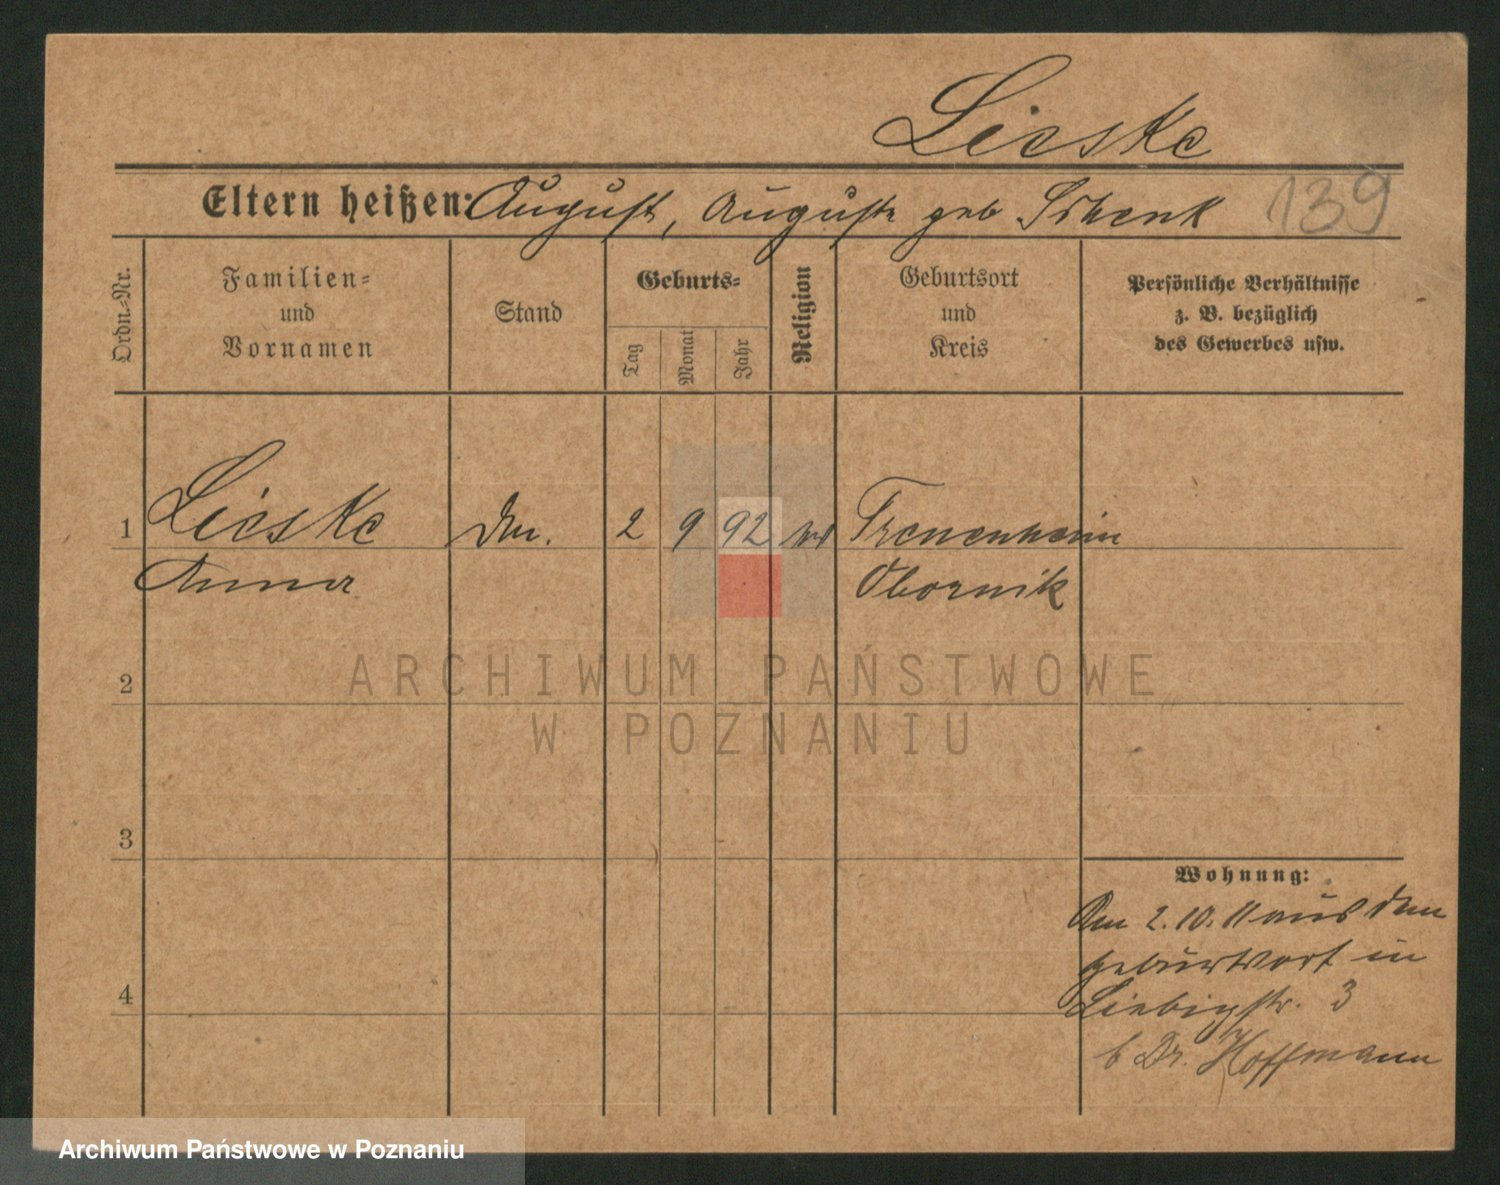 Lieske
Eltern heißen: August, Auguste geb Schenk 139
Ordn.-Nr.
Familien-
und
Vornamen
Stand
Geburts-
Tag
Monat
Jahr
Religion
Geburtsort
und
Kreis
Persönliche Verhältnisse
z. B. bezüglich
des Gewerbes usw.
1 Lieske 2 9 92 Treuenheim
Anna Obornik
ARCHIWUM PAŃSTWOWE
W POZNANIU
2
3
4
Wohnung:
Am 2.10.11 aus dem
Geburtsort in
Liebigstr. 3
b Dr. Hoffmann
Archiwum Państwowe w Poznaniu